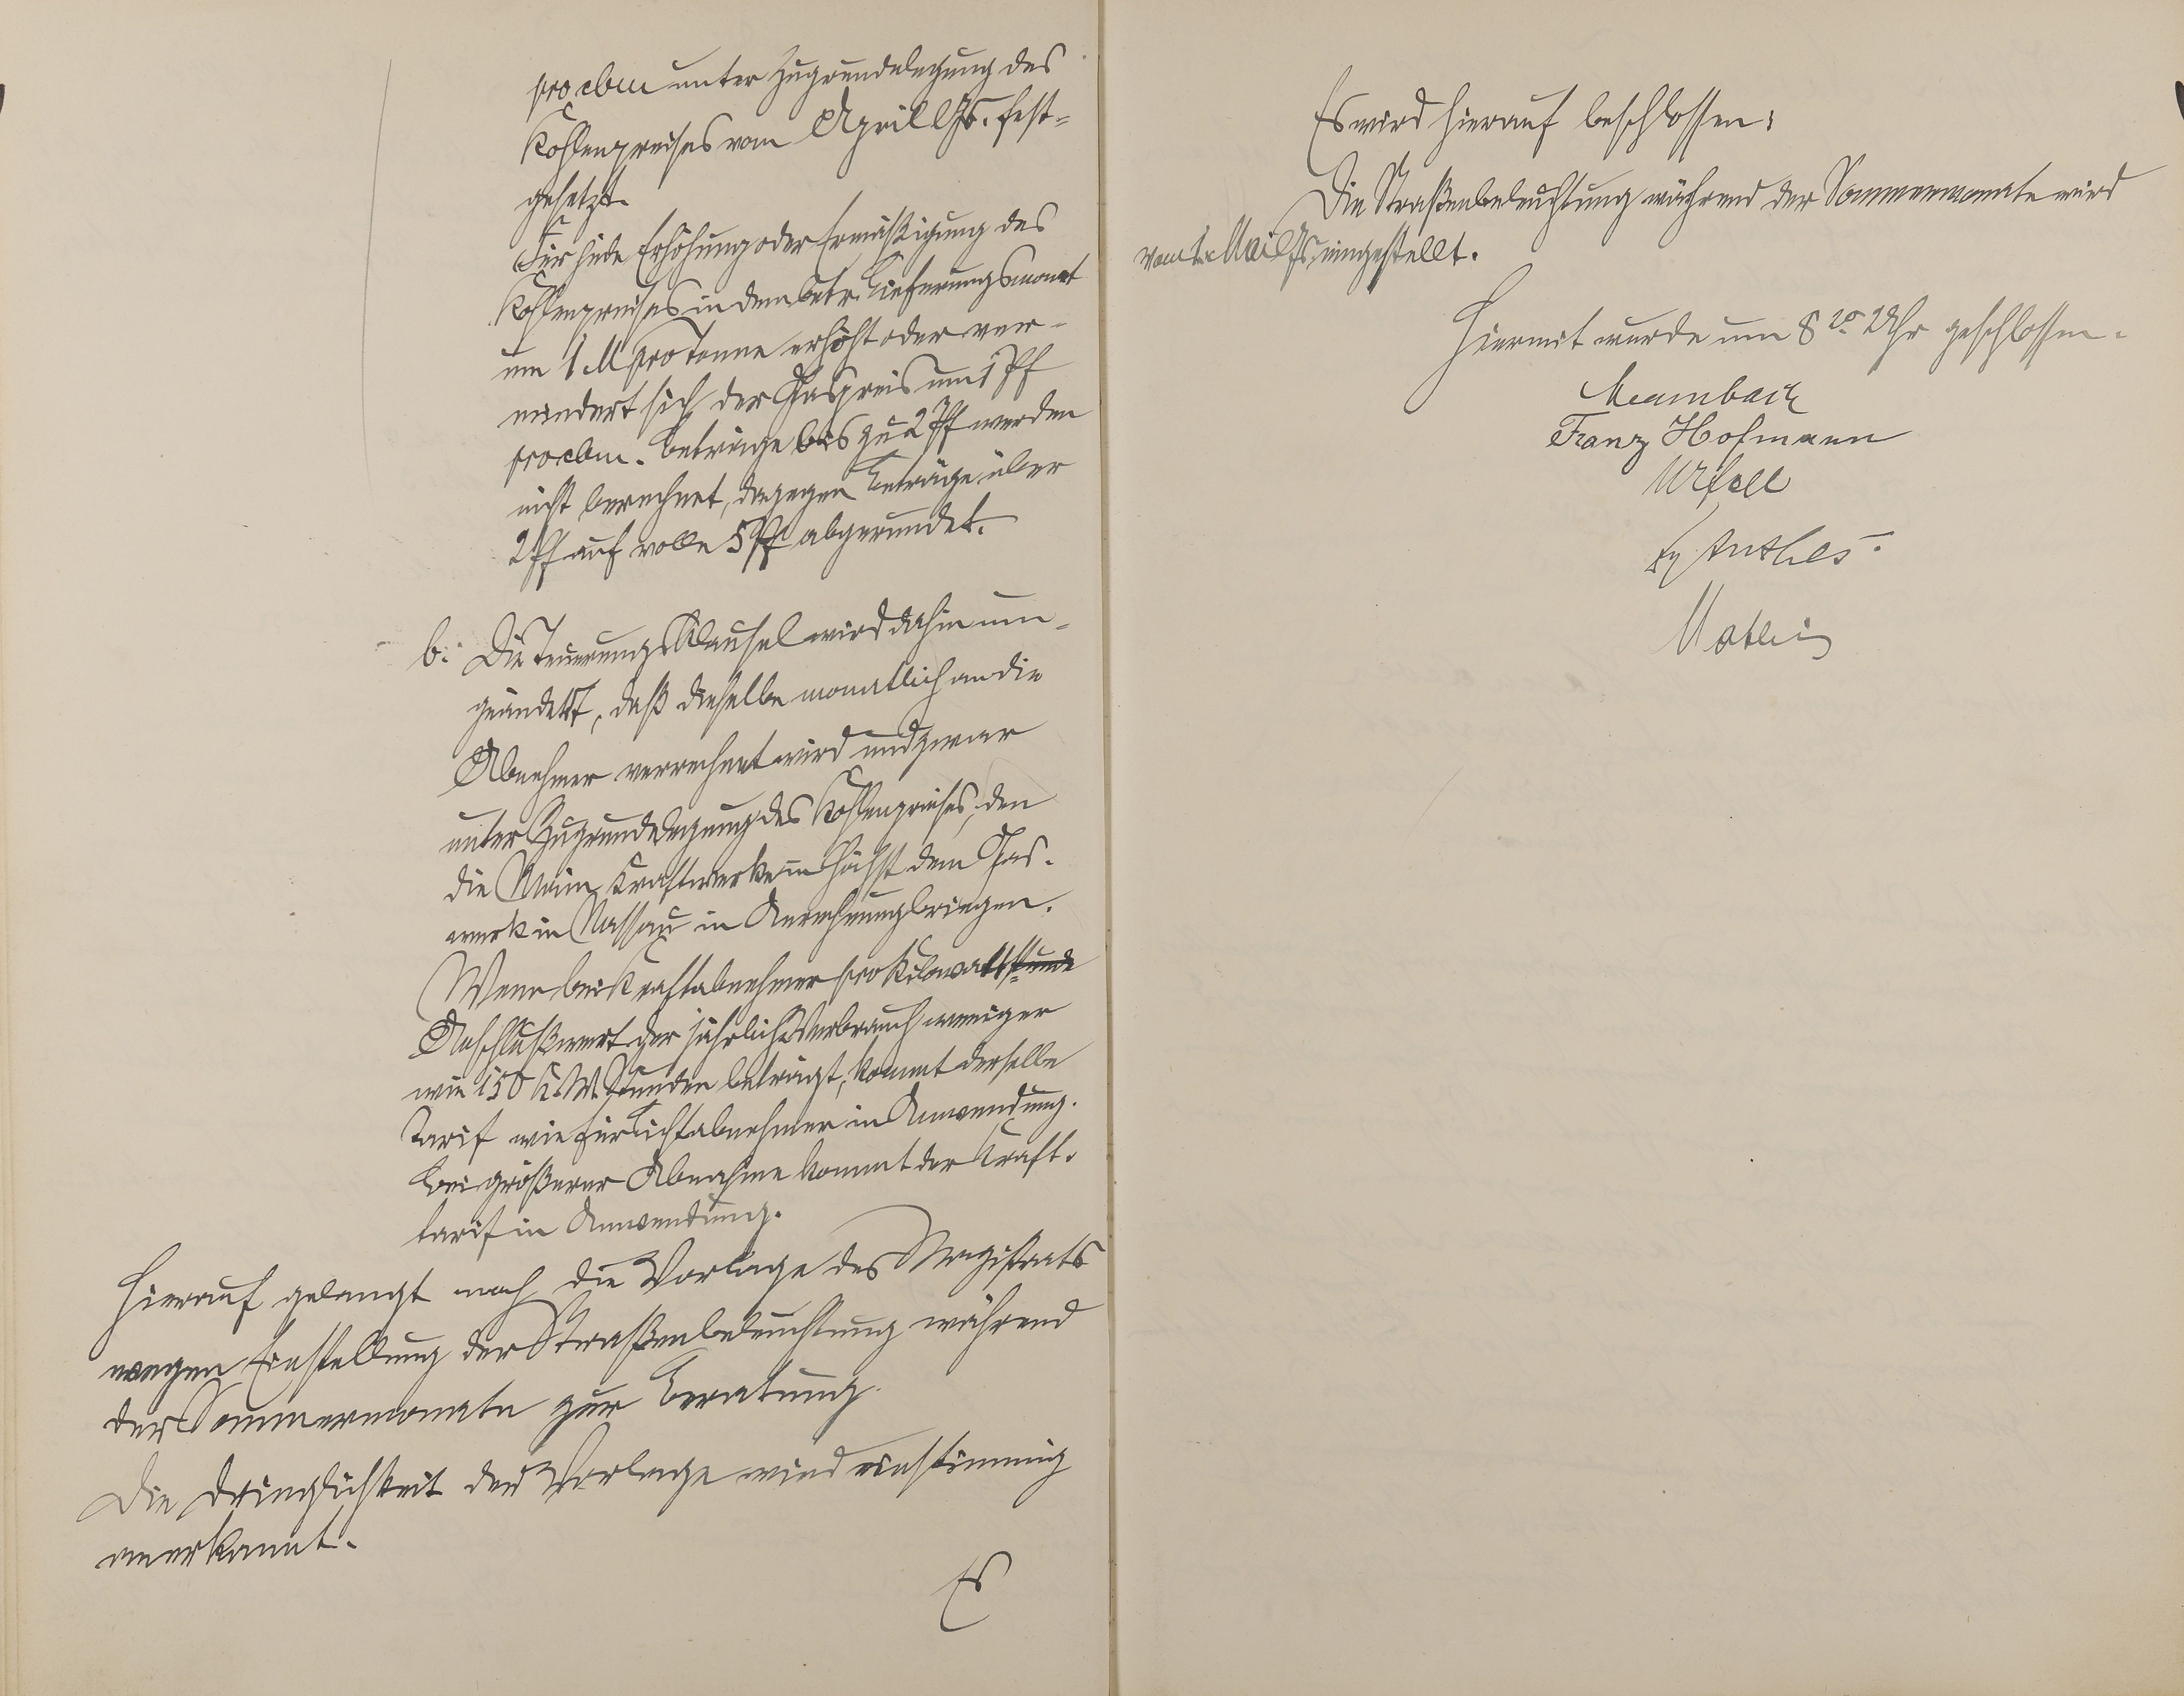 pro cbm unter Zugrundelegung des
Kohlenpreises vom April lJs. fest=
gesetzt.
Für jede Erhöhung oder Ermäßigung des
Kohlenpreises in dem betr. Lieferungsmonat
um 1 M pro Tonne erhöht oder ver-
mindert sich der Gaspreis um 1 Pf
pro cbm. Beträge bis zu 2 Pf werden
nicht berechnet, dagegen Beträge über
2 Pf auf volle 5 Pf abgerundet.
b. Die Teuerungsklausel wird dahin um=
geändert, daß dieselbe monatlich an die
Abnehmer verrechnet wird und zwar
unter Zugrundelegung des Kohlenpreises, den
die Main Kraftwerke in Höchst dem Gas-
werk in Nassau in Anrechnung bringen.
Wenn bei Kraftabnehmer pro Kilowattstunde
Anschlußwert der jährliche Verbrauch weniger
wie 150 K.W. Stunden beträgt, kommt derselbe
Tarif wie für Lichtabnehmer in Anwendung.
Bei größerer Abnahme kommt der Kraft-
tarif in Anwendung.
Hierauf gelangt noch die Vorlage des Magistrats
wegen Einstellung der Straßenbeleuchtung während
der Sommermonate zur Beratung.
Die Dringlichkeit der Vorlage wird einstimmig
anerkannt.
Es
Es wird hierauf beschlossen:
Die Straßenbeleuchtung während der Sommermonate wird
vom 1. Mai lJs. eingestellt.
Hiermit wurde um 8 20 Uhr geschlossen.
Franz Hofmann
Anthes.